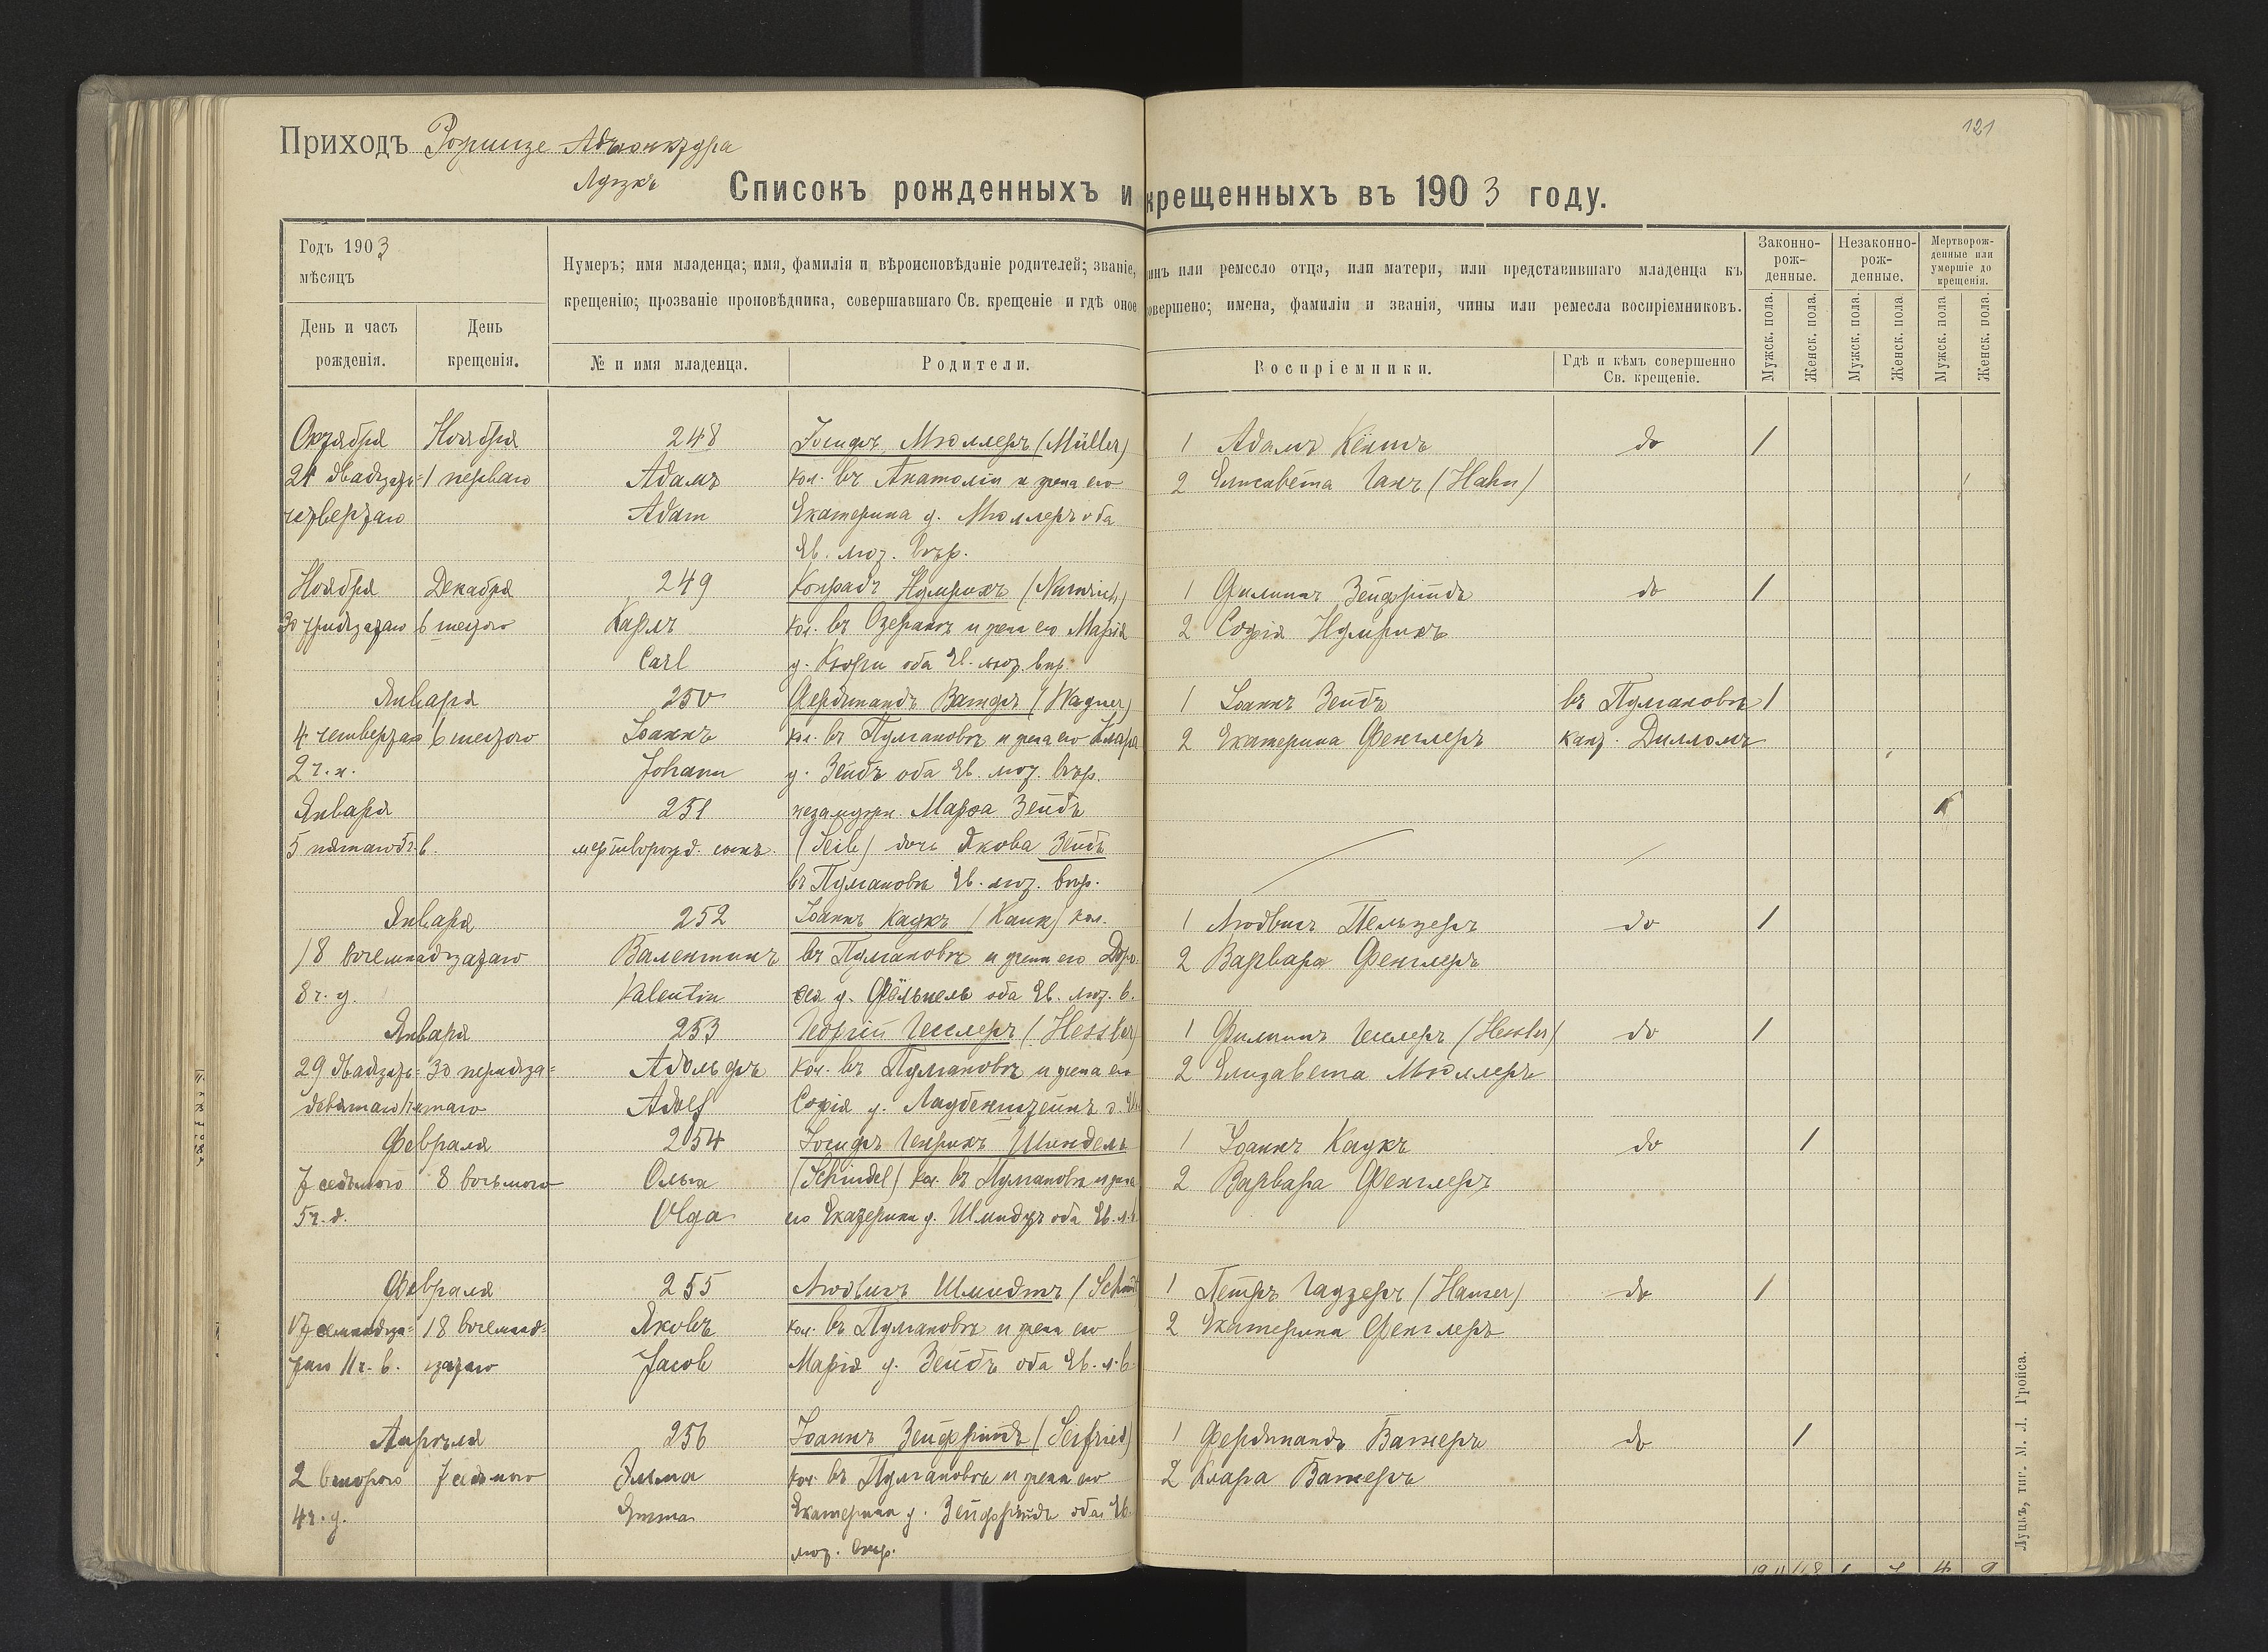 121
Приходъ Рожище Адъюнктура
Луцкъ
Списокъ рожденныхъ и крещенныхъ въ 1903 году.
Годъ 1903
мѣсяцъ
Нумеръ; имя младенца; имя, фамилія и вѣроисповѣданіе родителей; званіе, чинъ или ремесло отца, или матери, или представившаго младенца къ
крещенію; прозваніе проповѣдника, совершавшаго Св. крещеніе и гдѣ оное совершено; имена, фамиліи и званія, чины или ремесла воспріемниковъ.
Законно-рож-денные.
Незаконно-рож-денные.
Мертворож-денные или умершіе до крещенія.
День и часъ рожденія.
День крещенія.
№ и имя младенца.
Родители.
Воспріемники.
Гдѣ и кѣмъ совершенно Св. крещеніе.
Мужск. пола.
Женск. пола.
Мужск. пола.
Женск. пола
Мужск. пола
Женск. пола.
Октября Ноября 248 Іосифъ Мюллеръ (Müller) 1 Адамъ до 1
24 двадцать= 1 перваго Адамъ кол. въ Анатоліи и жена его 2 Елисавета Ганъ (Hahn)
четвертаго Adam Екатерина у. Мюллеръ оба
Ев. лют. вѣр.
Ноября Декабря 249 Конрадъ Нумрихъ (Numrich) 1 Филиппъ Зейфридъ до 1
30 тридцатаго 6 шестого Карлъ кол. въ Озеранъ и жена его Марія 2 Софія Нумрихъ
Carl у. оба Ев. лют. вѣр.
Января 250 Фердинандъ Вагнеръ (Wagner) 1 Іоаннъ Зейбъ въ Пулгановѣ 1
4 четвертаго 6 шестого Іоаннъ кол. въ Пулгановѣ и жена его Клара 2 Екатерина Фенглеръ кант. Дилломъ
2 ч. н. Johann у. Зейбъ оба Ев. лют. вѣр.
Января 251 незамужн. Марѳа Зейбъ 1
5 пятаго 5 ч. в. мертворожд. сынъ. (Seib) дочь Якова Зейбъ
въ Пулгановѣ Ев. лют. вѣр.
Января 252 Іоаннъ Каукъ (Kauk) кол. 1 Людвигъ Пельцеръ до 1
18 восемнадцатаго Валентинъ въ Пулгановѣ и жена его Доро- 2 Варвара Фенглеръ
8 ч. у. Valentin ѳея у. оба Ев. лют. в.
Января 253 Георгій Гесслеръ (Hessler) 1 Филиппъ Гесслеръ (Hessler) до 1
29 двадцать= 30 тридца= Адольфъ кол. въ Пулгановѣ и жена его 2 Елизавета Мюллеръ
девятаго таго Adolf Софія у. Лаубенштейнъ о. Ев.
Февраля 254 Іосифъ Генрихъ Шиндель 1 Іоаннъ Каукъ до 1
7 седьмого 8 восьмого Ольга (Schindel) кол. въ Пулгановѣ и жена 2 Варвара Фенглеръ
5 ч. д. Olga его Екатерина у. Шмидтъ оба Ев. л. в.
Февраля 255 Людвигъ Шмидтъ (Schmidt 1 Петръ Гаузеръ (Hauser) до 1
17 семнадца= 18 восемнад= Яковъ кол. въ Пулгановѣ и жена его 2 Екатерина Фенглеръ
таго 11 ч. в. цатаго Jacob Марія у. Зейбъ оба Ев. л. в.
Апрѣля 256 Іоаннъ Зейфридъ (Seifried) 1 Фердинандъ Вагнеръ до 1
2 второго 7 седьмого Эмма кол. въ Пулгановѣ и жена его 2 Клара Вагнеръ
4 ч. у. Emma Екатерина у. Зейфридъ оба Ев.
лют. вѣр.
Луцкъ, тип. М. Л. Гройса.